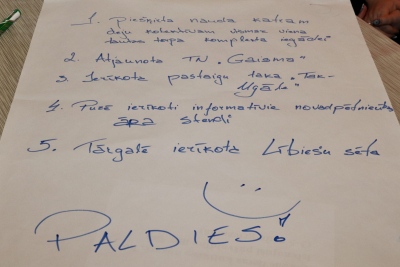 1. Piešķirta nauda katram
deju kolektīvam vismaz viena
tautas tērpa komplekta iegādei
2. Atjaunota TN "Gaisma"
3. Ierīkota pastaigu taka "Tak-
Ugāle"
4. Pucē ierīkoti informatīvie novadpētniecības
āra stendi
5. Tārgalē ierīkota Lībiešu sēta
PALDIES!